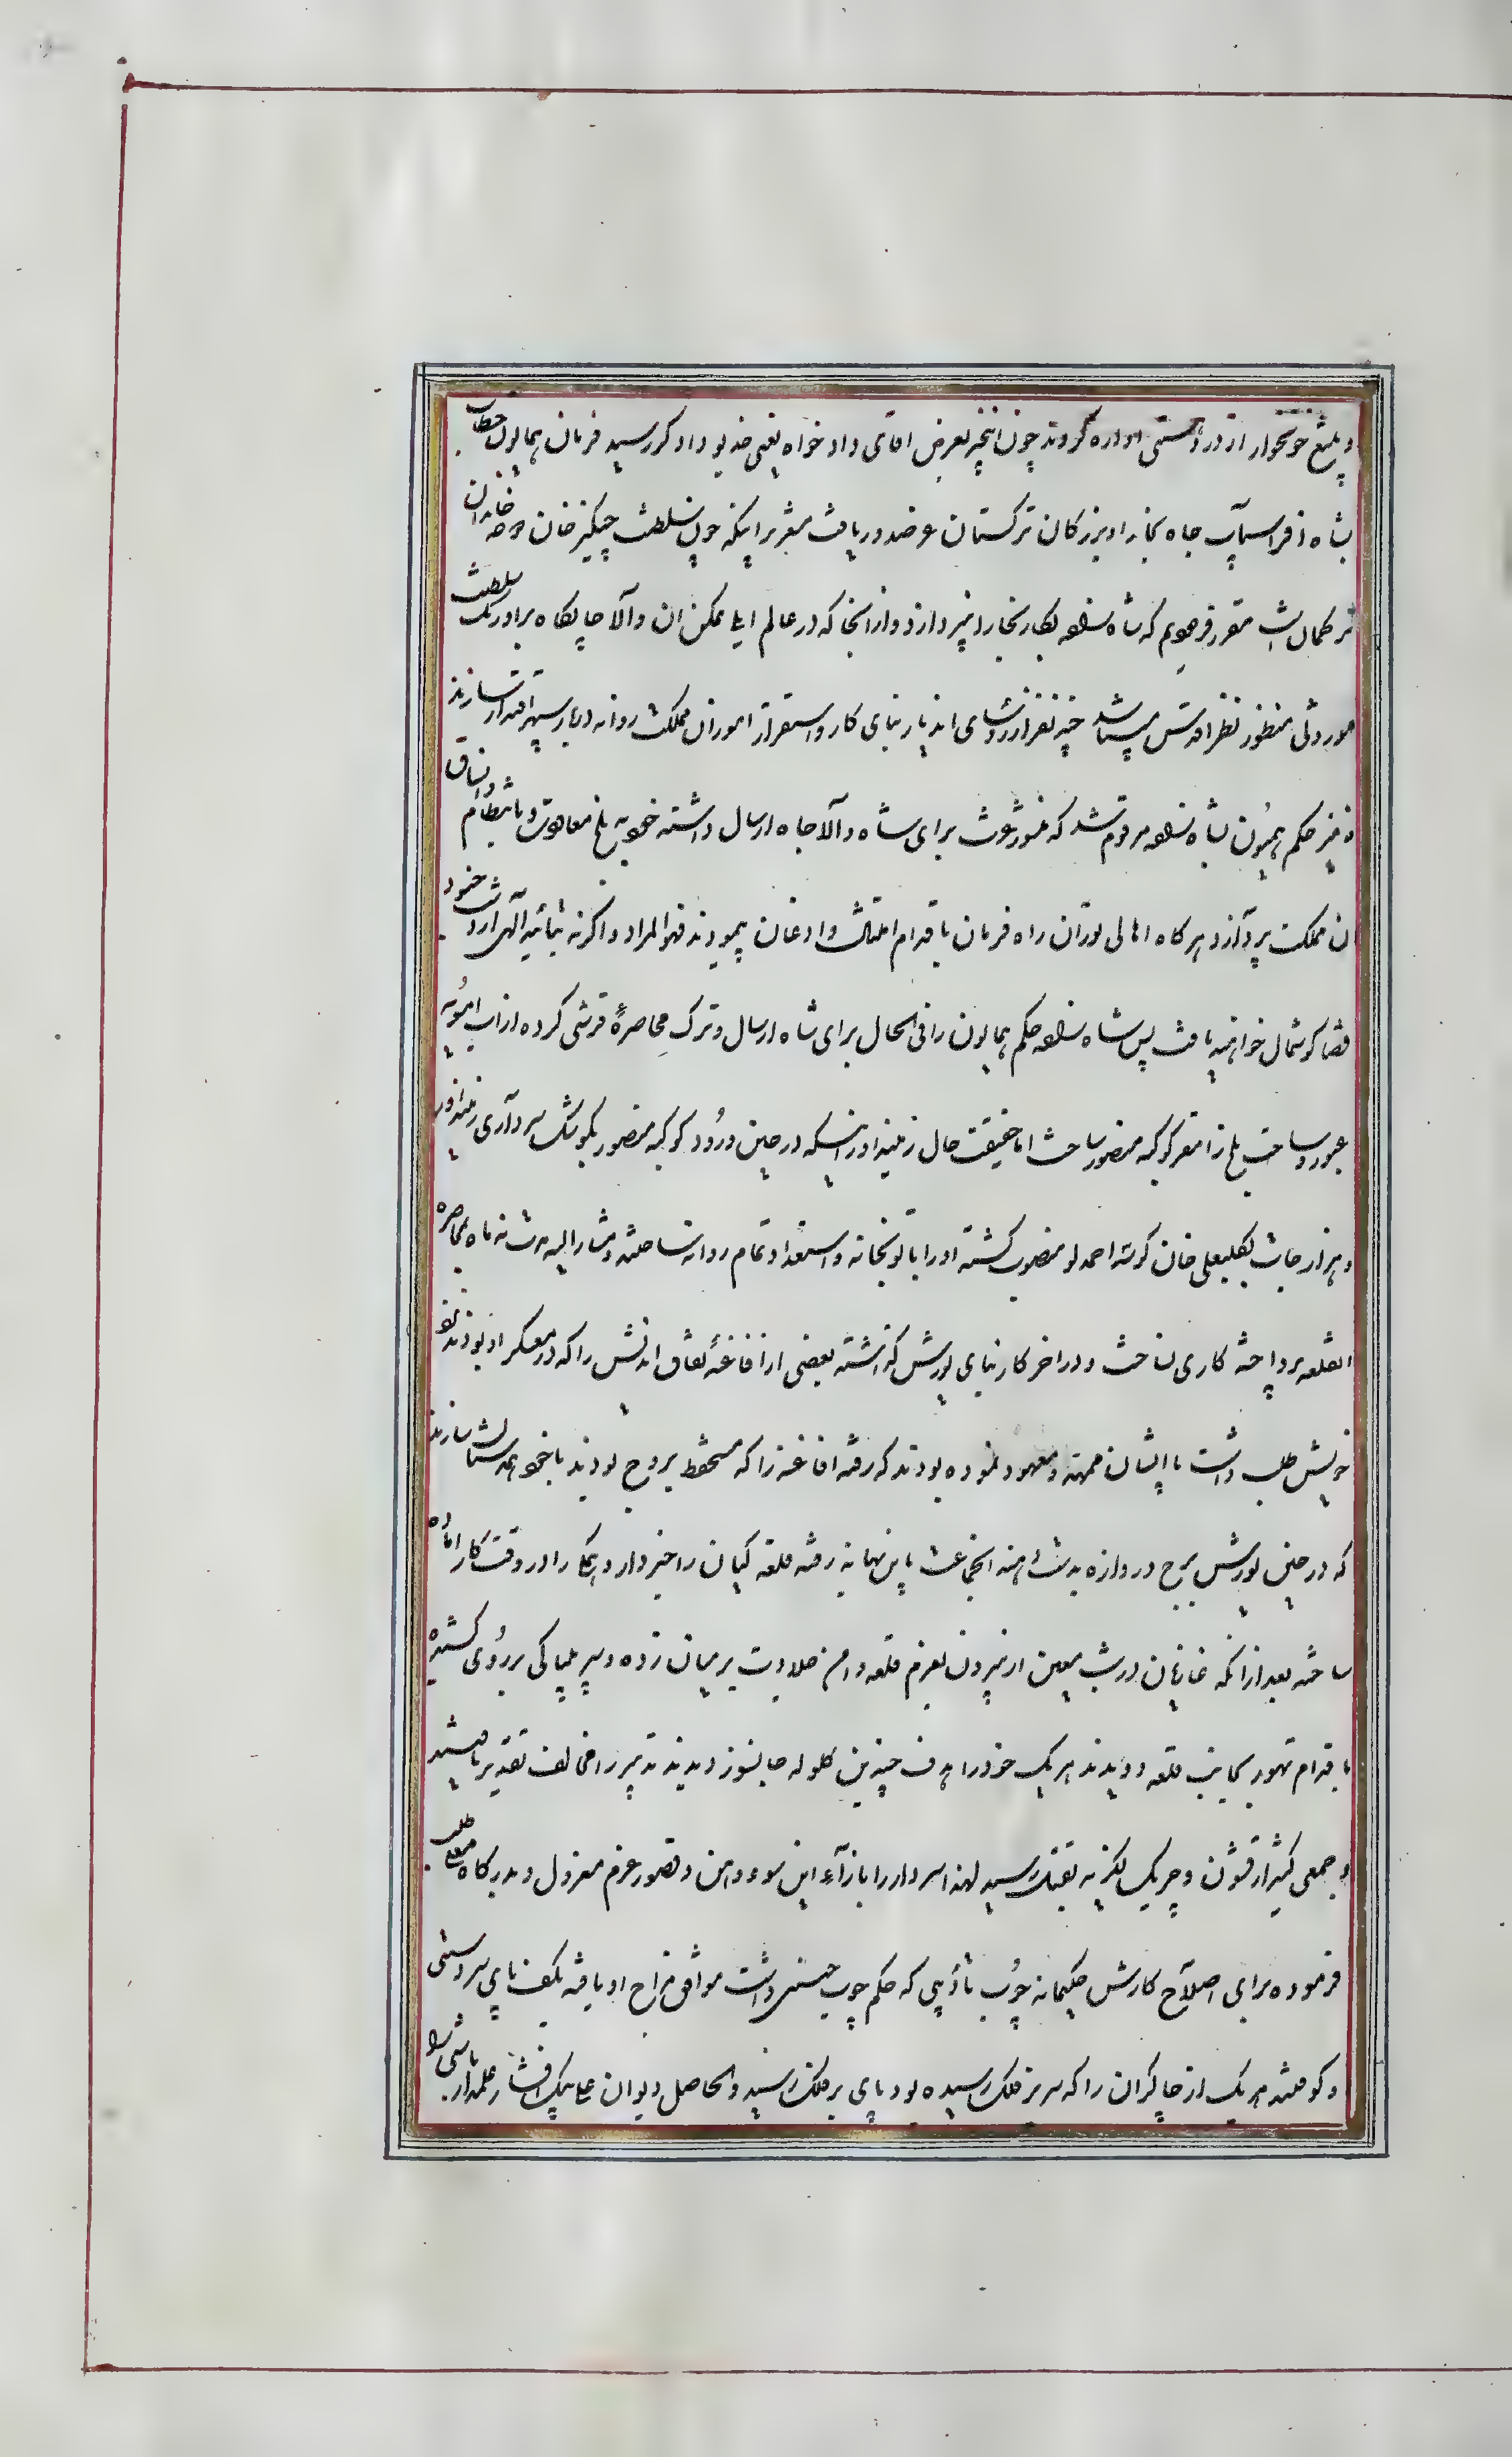 و تیغ خونخوار از در دستی اداره کردند چون اینخبر بعرض اقای داد خواه یعنی خدیو دادگر رسید فرمان همایون خطاب
بشاه افراسیاب جاه بخارا و بزرکان ترکستان عز صدور یافت مبنی بر اینکه چون سلطنت چنگیز خان و خاندان
ترکمان است مقرر فرمودیم که شاه بکار بخارا نپردازد و از انجا که در عالم ایلی تمکن ان والا جایگاه بر اورنگ سلطنت
موروثی منظور نظر اقدس میباشد چند نفر از رؤسای اندیار بنای کار و استقرار امور ان مملکت روانه دربار سپهر اقتدار سازند
و نیز حکم همیون بشاه مرقوم شد که منشور برای شاه والا جاه ارسال داشته خود به بلخ معاودت و بانتظام و انساق
ان مملکت پردازد هر کاه اهالی توران راه فرمان باقدام امتثال و اذعان پیمودند فهو المراد و اگر نه بتائید الهی از دست جنود
قضا کوشمال خواهند یافت پس شاه حکم همایون را فی الحال برای شاه ارسال و ترک محاصرهٔ قرشی کرده از اب امویه
عبور و ساحت بلخ را مقر کوکبه منصور ساخت اما حقیقت حال زمینداور اینسکه در حین ورود کوکبه منصور بکوشک سرداری زمینداور
و هزارجات بکلبعلی خان کوسه احمدلو منصوب کشته او را با توپخانه و استعداد تمام روانه ساختند و مشار الیه مدت نه ماه بمحاصره
انقلعه پرداخته کاری نساخت و در اخر کار بنای یورش کذاشته بعضی از افاغنهٔ نفاق اندیش را که در معسکر او بودند نزد
خویش طلب داشت با ایشان ممهد و معهود نموده بودند که رفته افاغنه را که مستحفظ بروج بودند با خود همداستان سازند
که در حین یورش برج و دروازه بدست دهند انجماعت پنهانی رفته قلعه کیان را خبردار و ایشان را در وقت کار اماده
ساخته بعد از انکه غازیان در شب معین از بیرون بعزم قلعه دامن جلادت بر میان زده و سپر بیباکی بر روی کشیده
باقدام تهور بجانب قلعه دویدند هر یک خود را هدف چندین کلوله جانسوز دیدند تدبیر را مخالف تقدیر یافتند
و جمعی کثیر از قشون و چریک لکزیه بقتل رسید لهذا سردار را بازاء این سوء و وهن و قصور عزم معزول و بدرکاه معلی طلب
فرموده برای اصلاح کارش حکیمانه چوب تادیبی که حکم چوب چینی داشت موافق مزاج او یافته بکف پای سردستی
و کوفتند هر یک از چاکران را که سر بر فلک رسیده بود پای بر فلک رسید و الحاصل دیوان علی بیک افشار علمدار باشی را